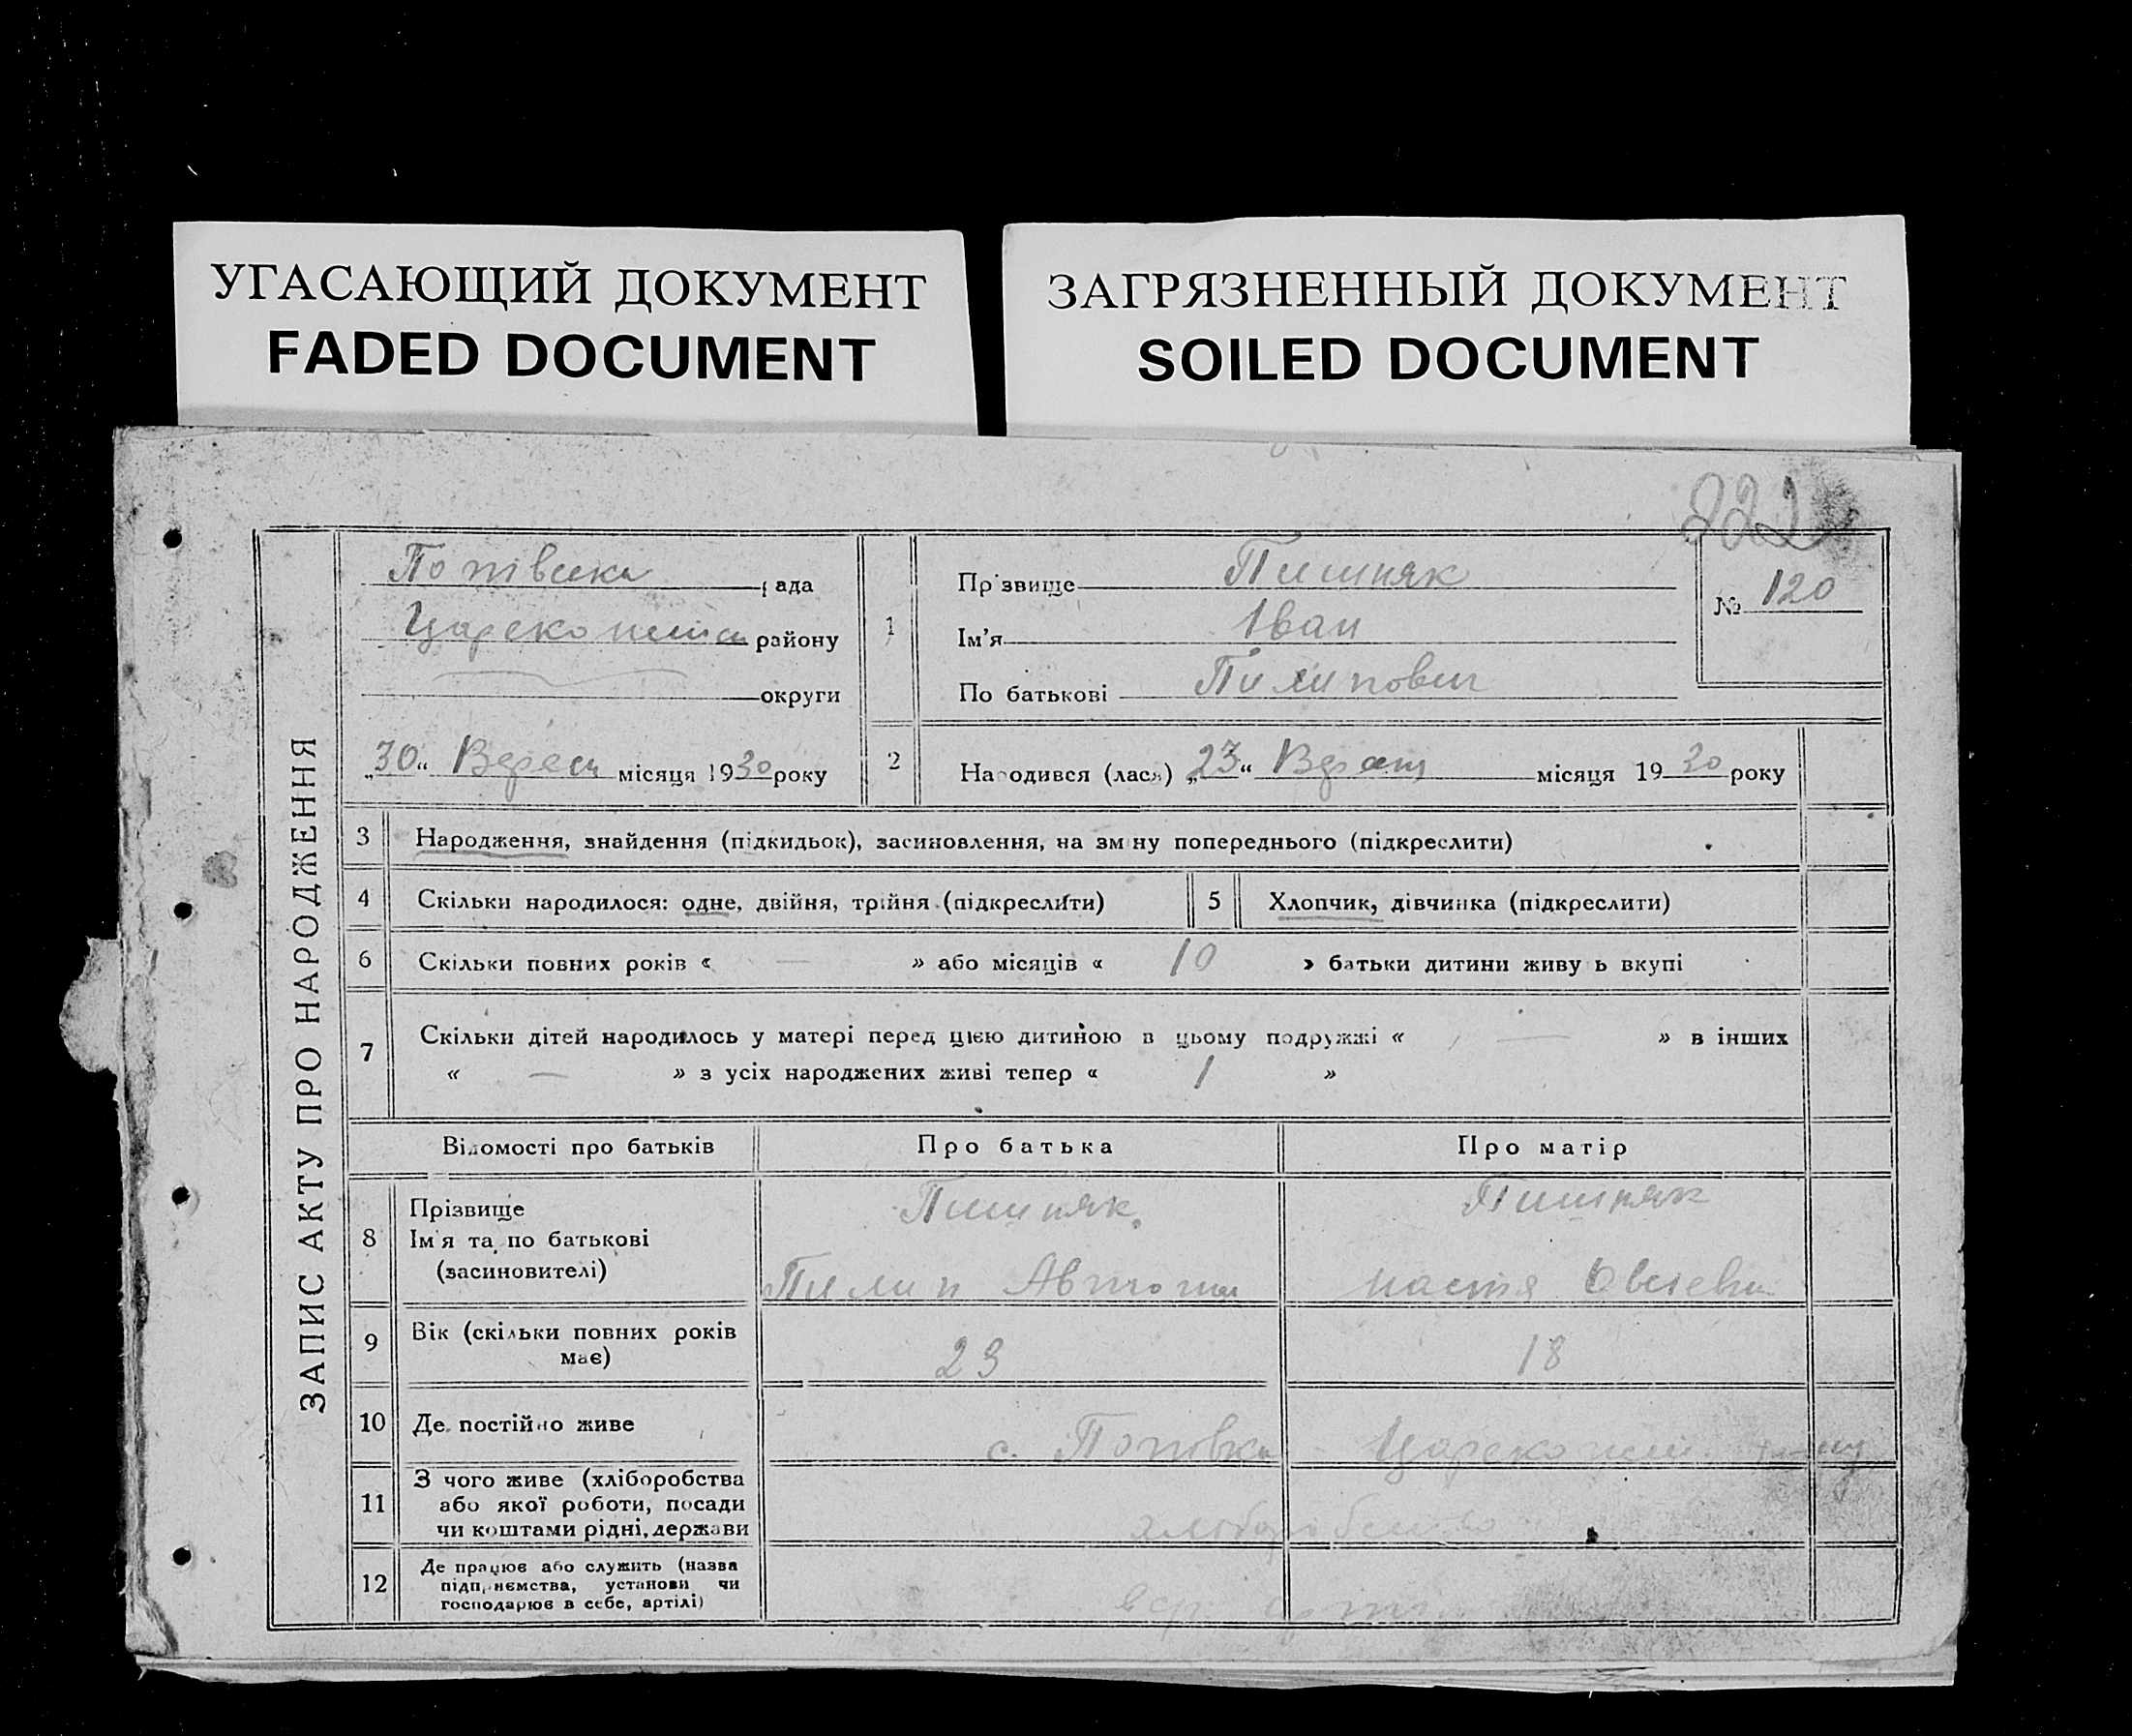 УГАСАЮЩИЙ ДОКУМЕНТ
FADED DOCUMENT
ЗАГРЯЗНЕННЫЙ ДОКУМЕНТ
SOILED DOCUMENT
222
ЗАПИС АКТУ ПРО НАРОДЖЕННЯ
Попівська рада
района
округи
„30“ Верес місяця 1930 року
1
Прізвище Пишняк
Ім'я Іван
По батькові Пилипович
№ 120
2 Народився (лася) „23“ місяця 1930 року
3 Народження, знайдення (підкидьок), засиновлення, на зміну попереднього (підкреслити)
4 Скільки народилося: одне, двійня, трійня (підкреслити) 5 Хлопчик, дівчинка (підкреслити)
6 Скільки повних років « — » або місяців « 10 » батьки дитини живуть вкупі
7 Скільки дітей народилось у матері перед цією дитиною в цьому подружжі « — » в інших
« — » з усіх народжених живі тепер « 1 »
Відомості про батьків Про батька Про матір
8 Прізвище
Ім'я та по батькові
(засиновителі)
Пишняк Пишняк
Пилип Настя
9 Вік (скільки повних років
має)
23 18
10 Де постійно живе с. Попівка
11 З чого живе (хліборобства
або якої роботи, посади
чи коштами рідні, держави
хліборобство
12 Де працює або служить (назва
підприємства, установи чи
господарює в себе, артілі)